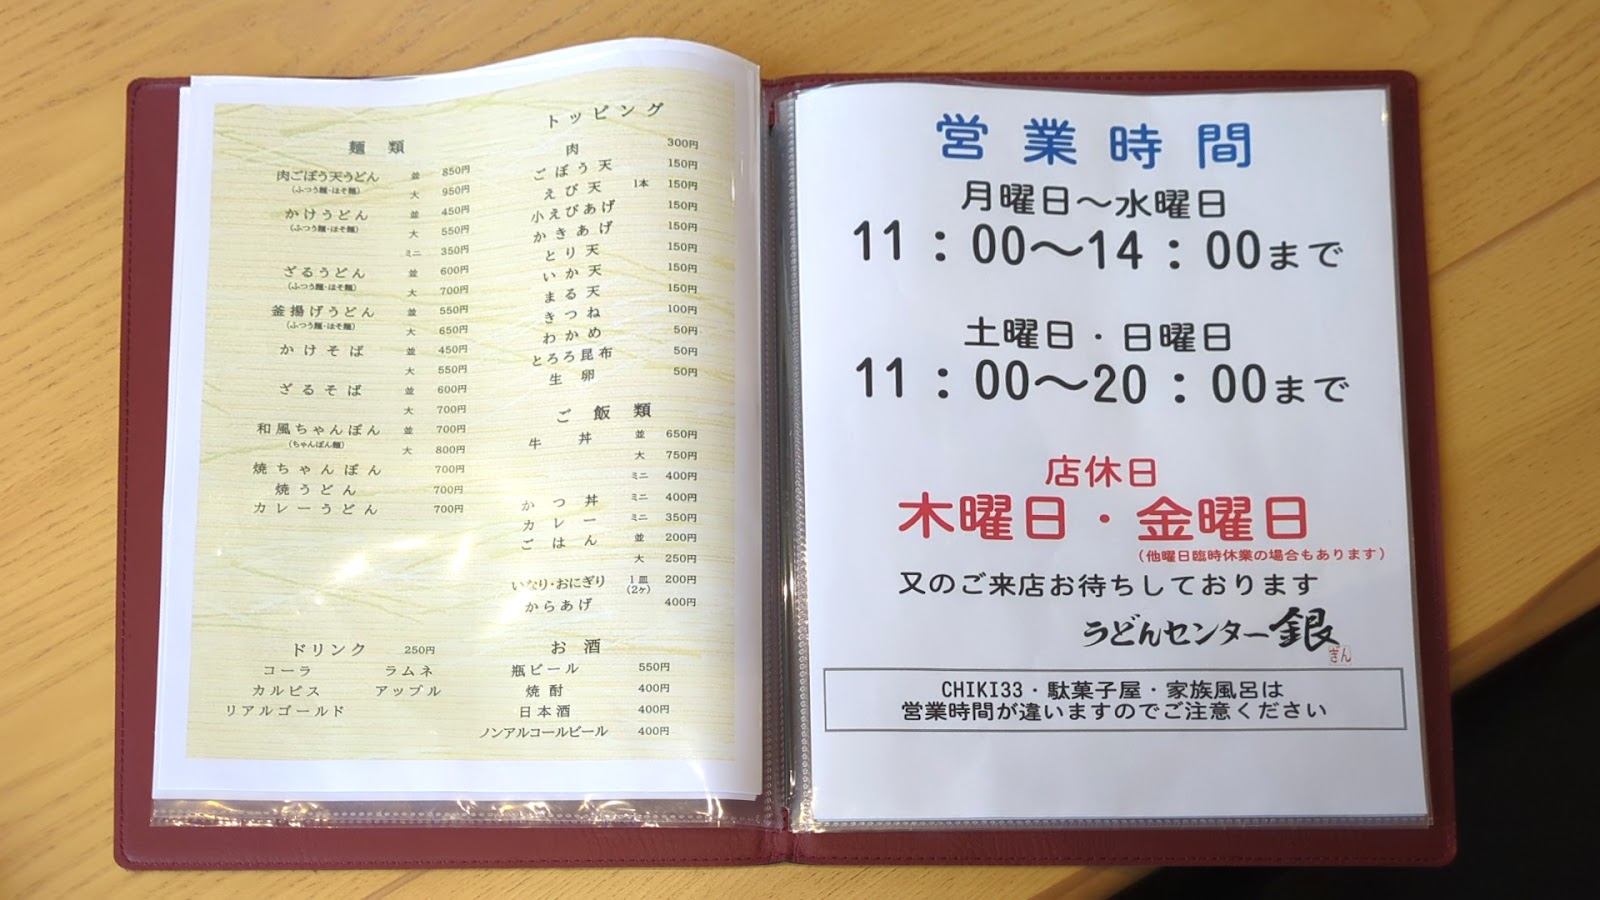 麺類
肉ごぼう天うどん 並 850円
(ふつう麺・ほそ麺) 大 950円
かけうどん 並 450円
(ふつう麺・ほそ麺) 大 550円
ミニ 350円
ざるうどん 並 600円
(ふつう麺・ほそ麺) 大 700円
釜揚げうどん 並 550円
(ふつう麺・ほそ麺) 大 650円
かけそば 並 450円
大 550円
ざるそば 並 600円
大 700円
和風ちゃんぽん 並 700円
(ちゃんぽん麺) 大 800円
焼ちゃんぽん 700円
焼うどん 700円
カレーうどん 700円
トッピング
肉 300円
ごぼう天 150円
えび天 1本 150円
小えびあげ 150円
かきあげ 150円
とり天 150円
いか天 150円
まる天 150円
きつね 100円
わかめ 50円
とろろ昆布 50円
生卵 50円
ご飯類
牛丼 並 650円
大 750円
ミニ 400円
かつ丼 ミニ 400円
カレー ミニ 350円
ごはん 並 200円
大 250円
いなり・おにぎり 1皿 200円
(2ヶ)
からあげ 400円
ドリンク 250円
コーラ ラムネ
カルピス アップル
リアルゴールド
お酒
瓶ビール 550円
焼酎 400円
日本酒 400円
ノンアルコールビール 400円
営業時間
月曜日〜水曜日
11：00〜14：00まで
土曜日・日曜日
11：00〜20：00まで
店休日
木曜日・金曜日
（他曜日臨時休業の場合もあります）
又のご来店お待ちしております
うどんセンター銀
ぎん
CHIKI33・駄菓子屋・家族風呂は
営業時間が違いますのでご注意ください